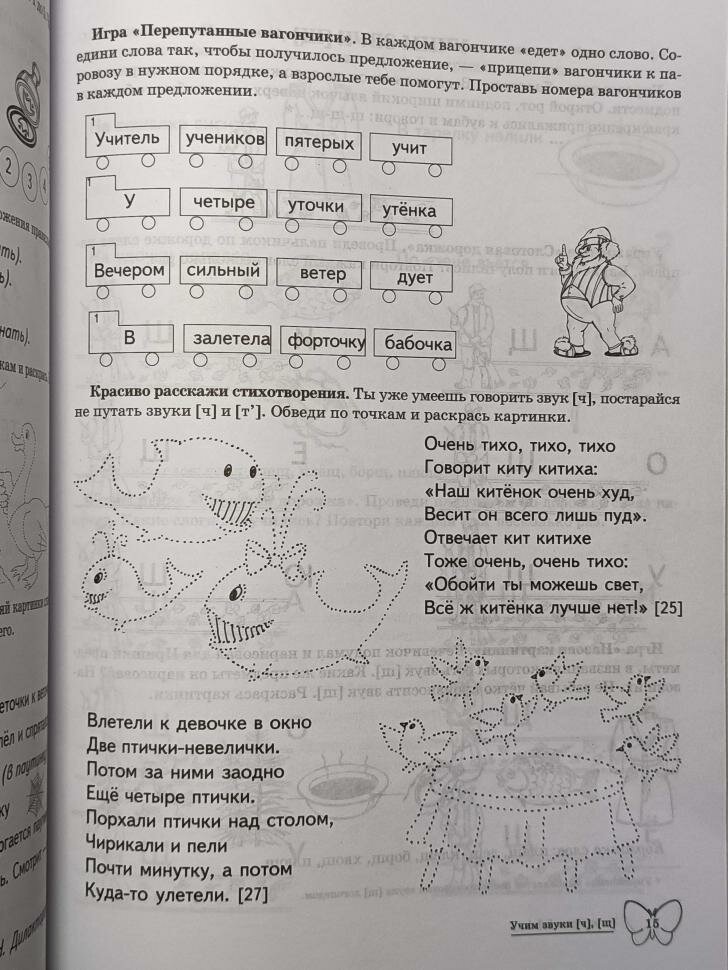 Игра «Перепутанные вагончики». В каждом вагончике «едет» одно слово. Со-
едини слова так, чтобы получилось предложение, — «прицепи» вагончики к па-
ровозу в нужном порядке, а взрослые тебе помогут. Проставь номера вагончиков
в каждом предложении.
1
Учитель учеников пятерых учит
1
У четыре уточки утёнка
1
Вечером сильный ветер дует
1
В залетела форточку бабочка
Красиво расскажи стихотворения. Ты уже умеешь говорить звук [ч], постарайся
не путать звуки [ч] и [т’]. Обведи по точкам и раскрась картинки.
Очень тихо, тихо, тихо
Говорит киту китиха:
«Наш китёнок очень худ,
Весит он всего лишь пуд».
Отвечает кит китихе
Тоже очень, очень тихо:
«Обойти ты можешь свет,
Всё ж китёнка лучше нет!» [25]
Влетели к девочке в окно
Две птички-невелички.
Потом за ними заодно
Ещё четыре птички.
Порхали птички над столом,
Чирикали и пели
Почти минутку, а потом
Куда-то улетели. [27]
Учим звуки [ч], [щ] 15